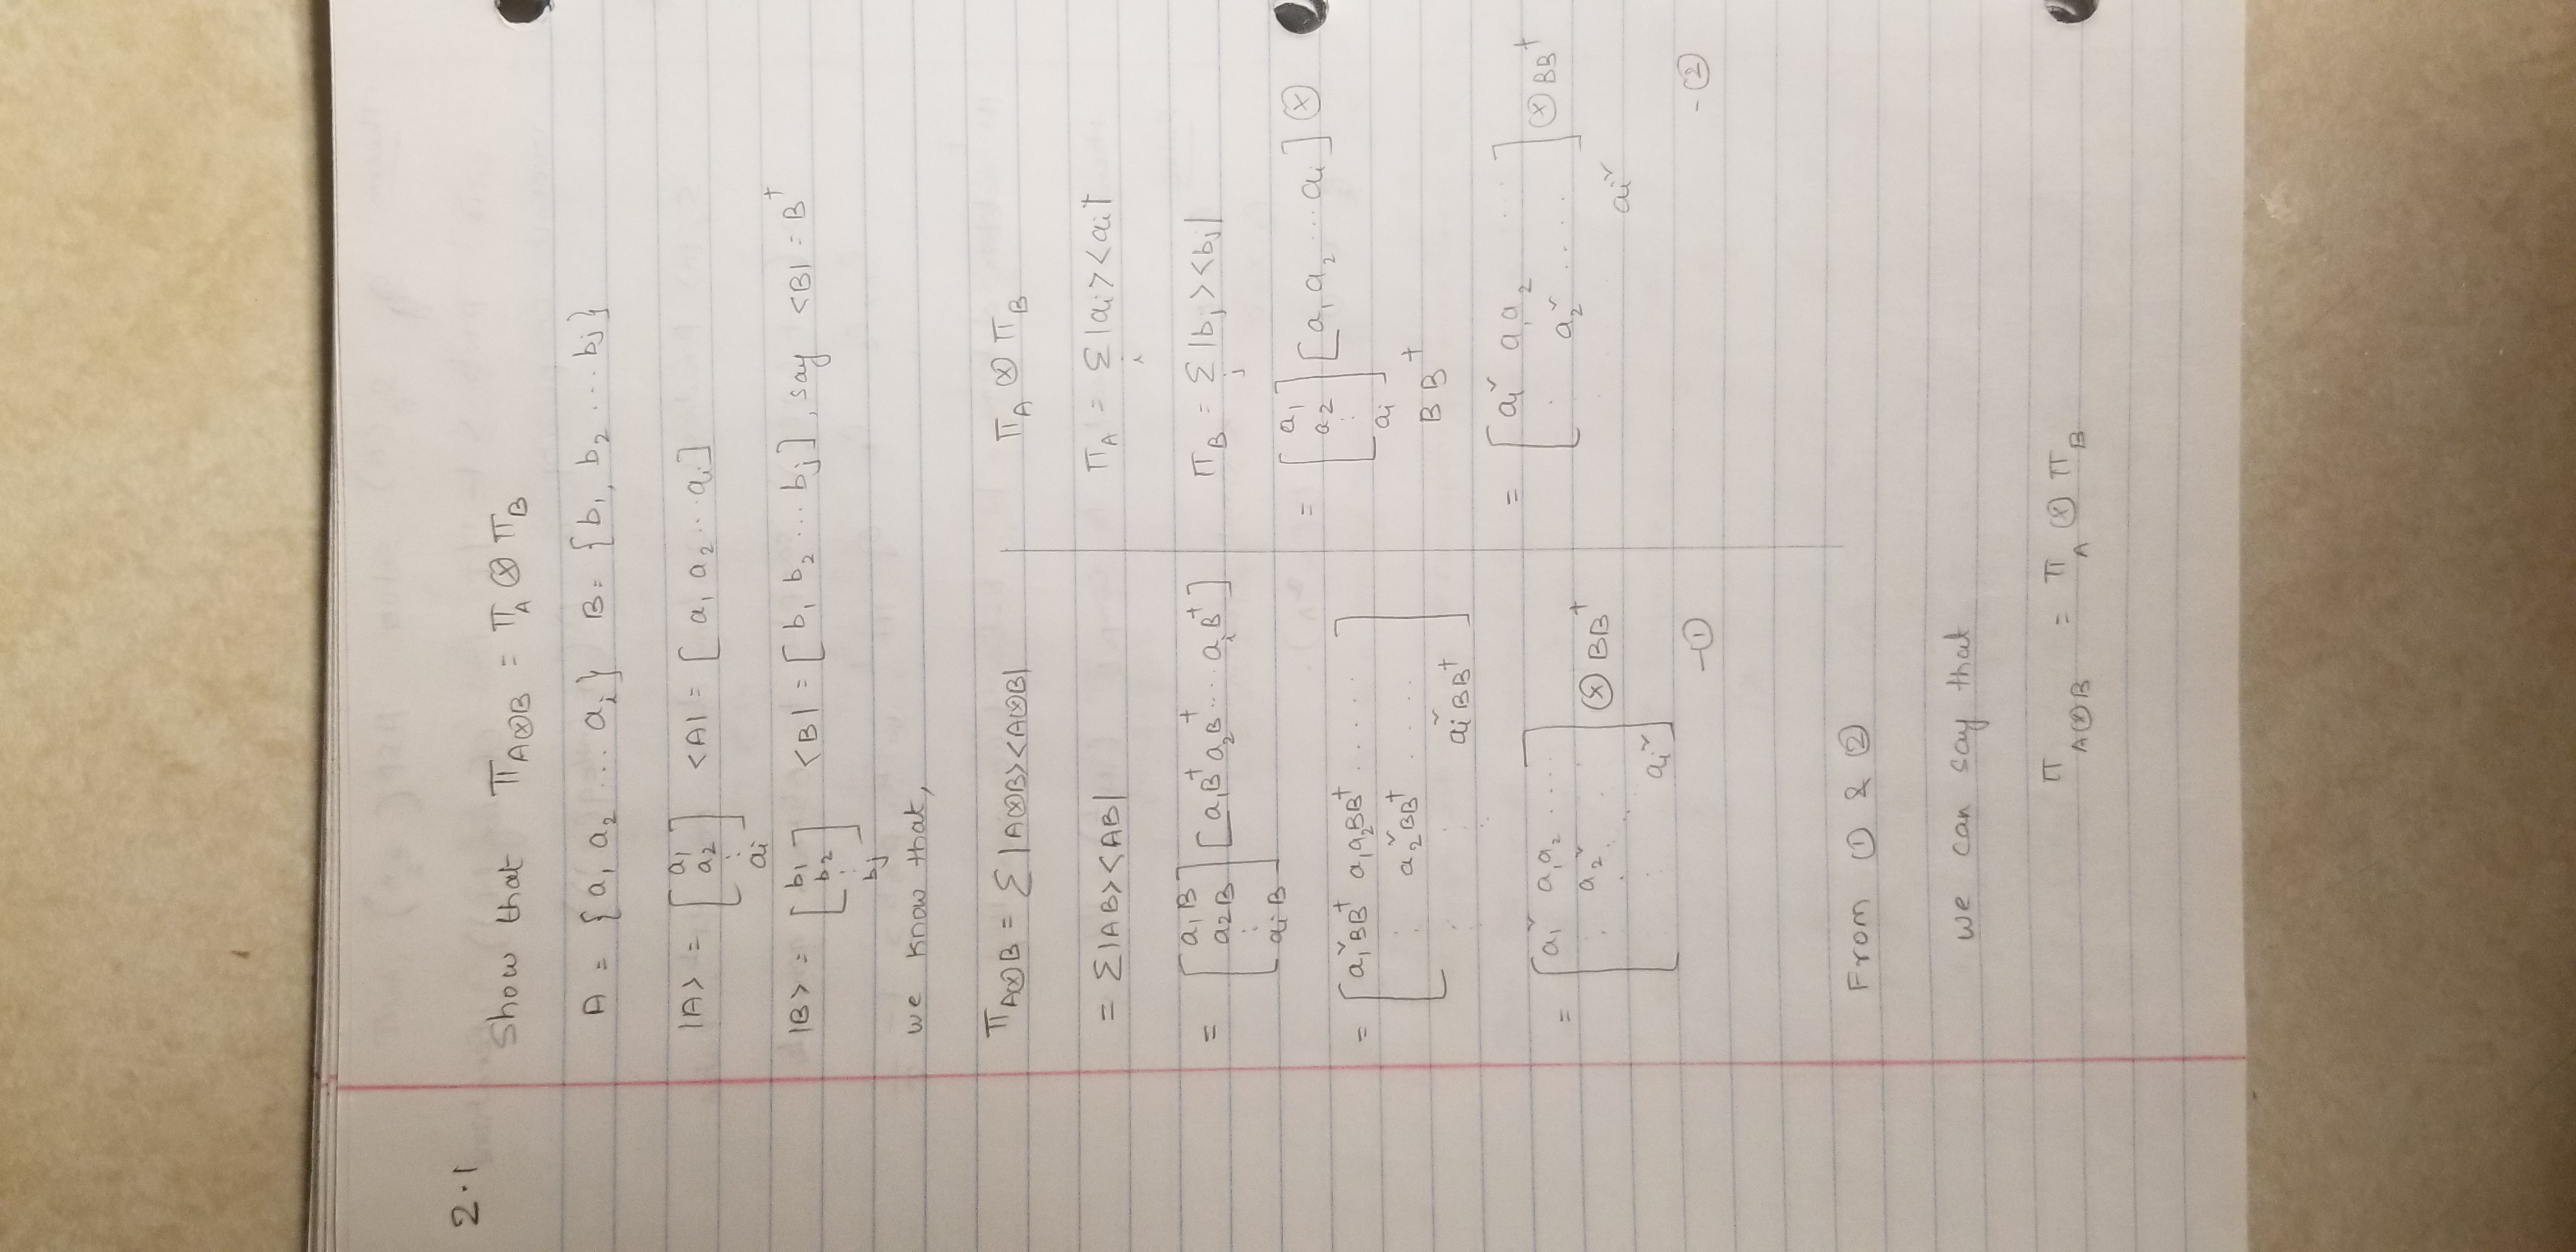 2.1
Show that π_{A⊗B} = π_A ⊗ π_B
A = {a₁ a₂ ... aᵢ} B = {b₁, b₂ ... bⱼ}
|A> = [a₁ a₂ ⋮ aᵢ] <A| = [a₁ a₂ ... aᵢ]
|B> = [b₁ b₂ ⋮ bⱼ] <B| = [b₁ b₂ ... bⱼ], say <B| = B†
we know that,
π_{A⊗B} = Σ |A⊗B><A⊗B|
= Σ|AB><AB|
= [a₁B a₂B ⋮ aᵢB] [a₁B† a₂B† ... aᵢB†]
= [a₁²BB† a₁a₂BB† .....
⋮ a₂²BB† ....
⋮ ⋮ aᵢ²BB†]
= [a₁² a₁a₂ ....
⋮ a₂² ⋱
⋮ aᵢ²] ⊗ BB†
-①
π_A ⊗ π_B
π_A = Σᵢ |aᵢ><aᵢ|
π_B = Σⱼ |bⱼ><bⱼ|
= [a₁ a₂ ⋮ aᵢ] [a₁ a₂ ... aᵢ] ⊗
BB†
= [a₁² a₁a₂ ...
⋮ a₂² ....
aᵢ²] ⊗ BB†
-②
From ① & ②
we can say that
π_{A⊗B} = π_A ⊗ π_B